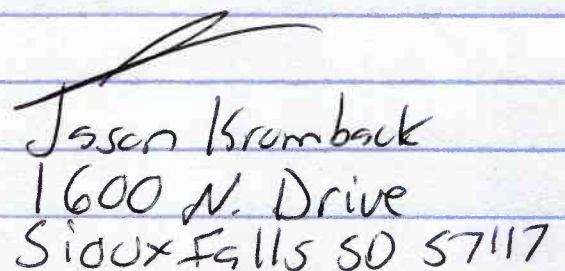 Jason Krumback
1600 N. Drive
Sioux Falls SD 57117